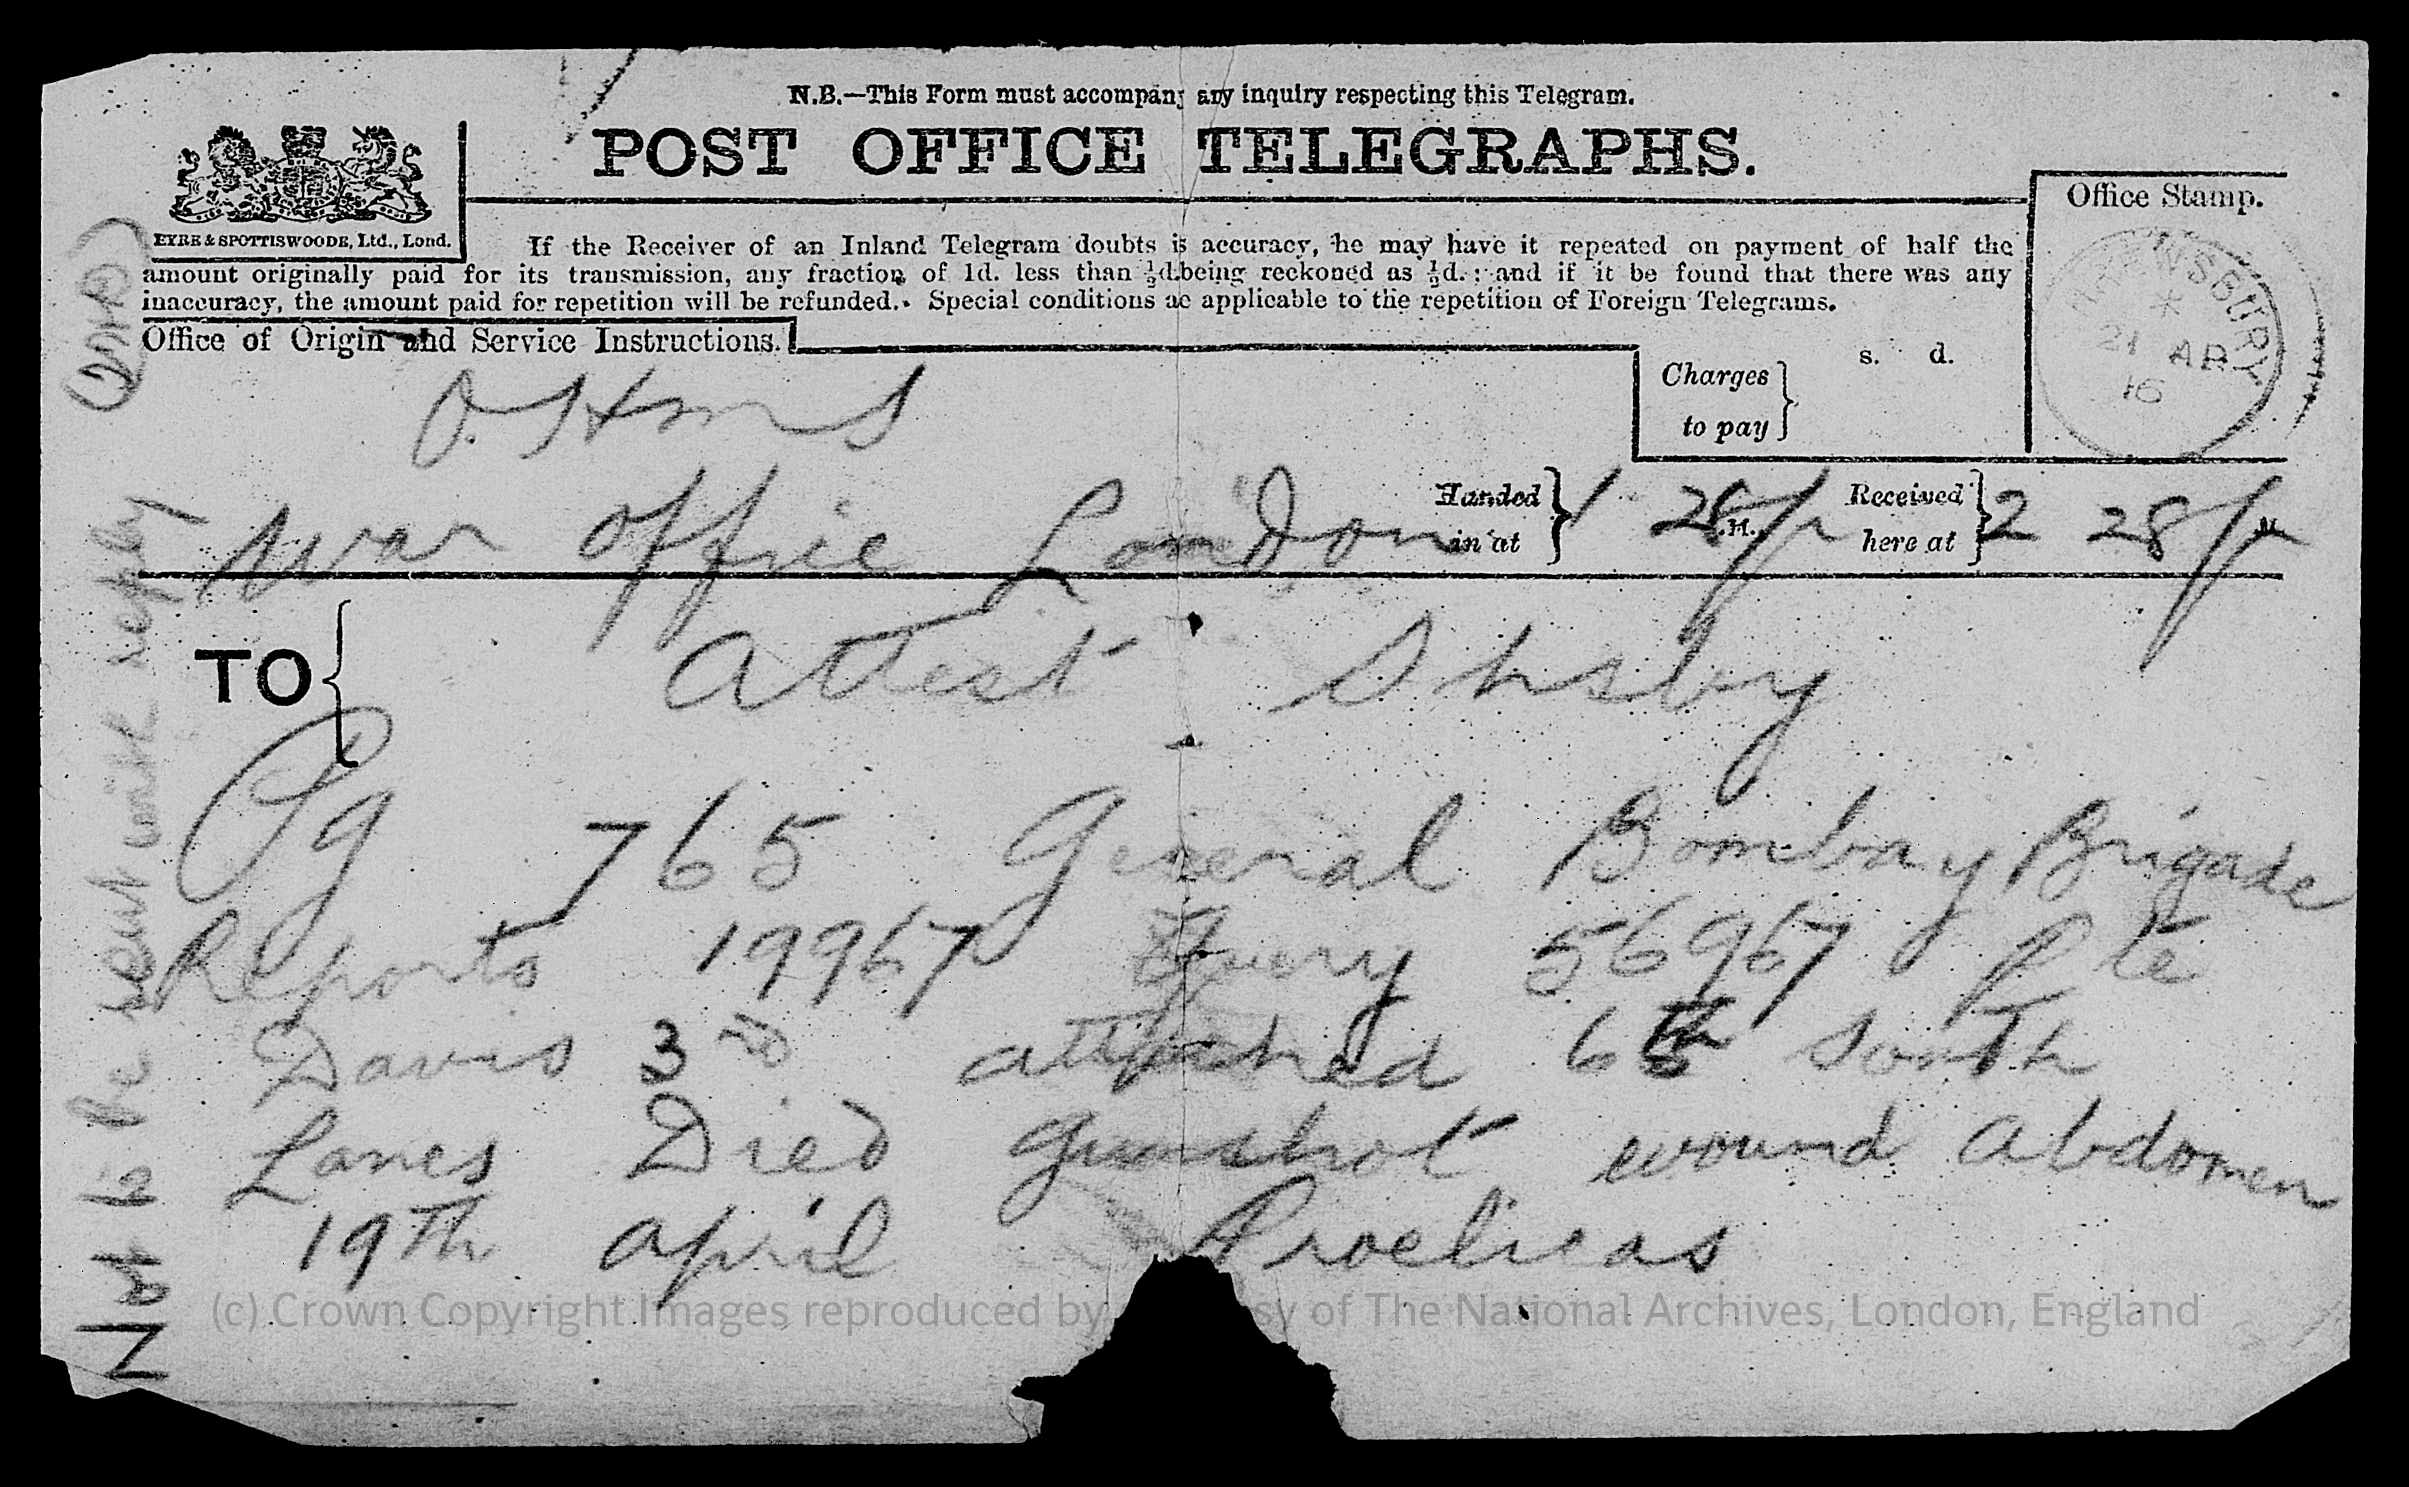 N.B.—This Form must accompany any inquiry respecting this Telegram.
POST OFFICE TELEGRAPHS.
EYRE & SPOTTISWOODE, Ltd., Lond.
Office Stamp.
If the Receiver of an Inland Telegram doubts is accuracy, he may have it repeated on payment of half the
amount originally paid for its transmission, any fraction of 1d. less than ½d. being reckoned as ½d.; and if it be found that there was any
inaccuracy, the amount paid for repetition will be refunded. Special conditions ae applicable to the repetition of Foreign Telegrams.
SHREWSBURY
21 AP
16
Office of Origin and Service Instructions.
Charges to pay } s. d.
O.H.M.S
War Office London
Handed in at } 1 28 p M.
Received here at } 2 28 p M
TO { Attest Shsby
765 General Bombay Brigade
Reports 19967 Query 56967 Pte
Davis 3rd attached 6th South
Lancs Died gunshot wound Abdomen
19th April
Not to be sent with reply
(c) Crown Copyright Images reproduced by sy of The National Archives, London, England